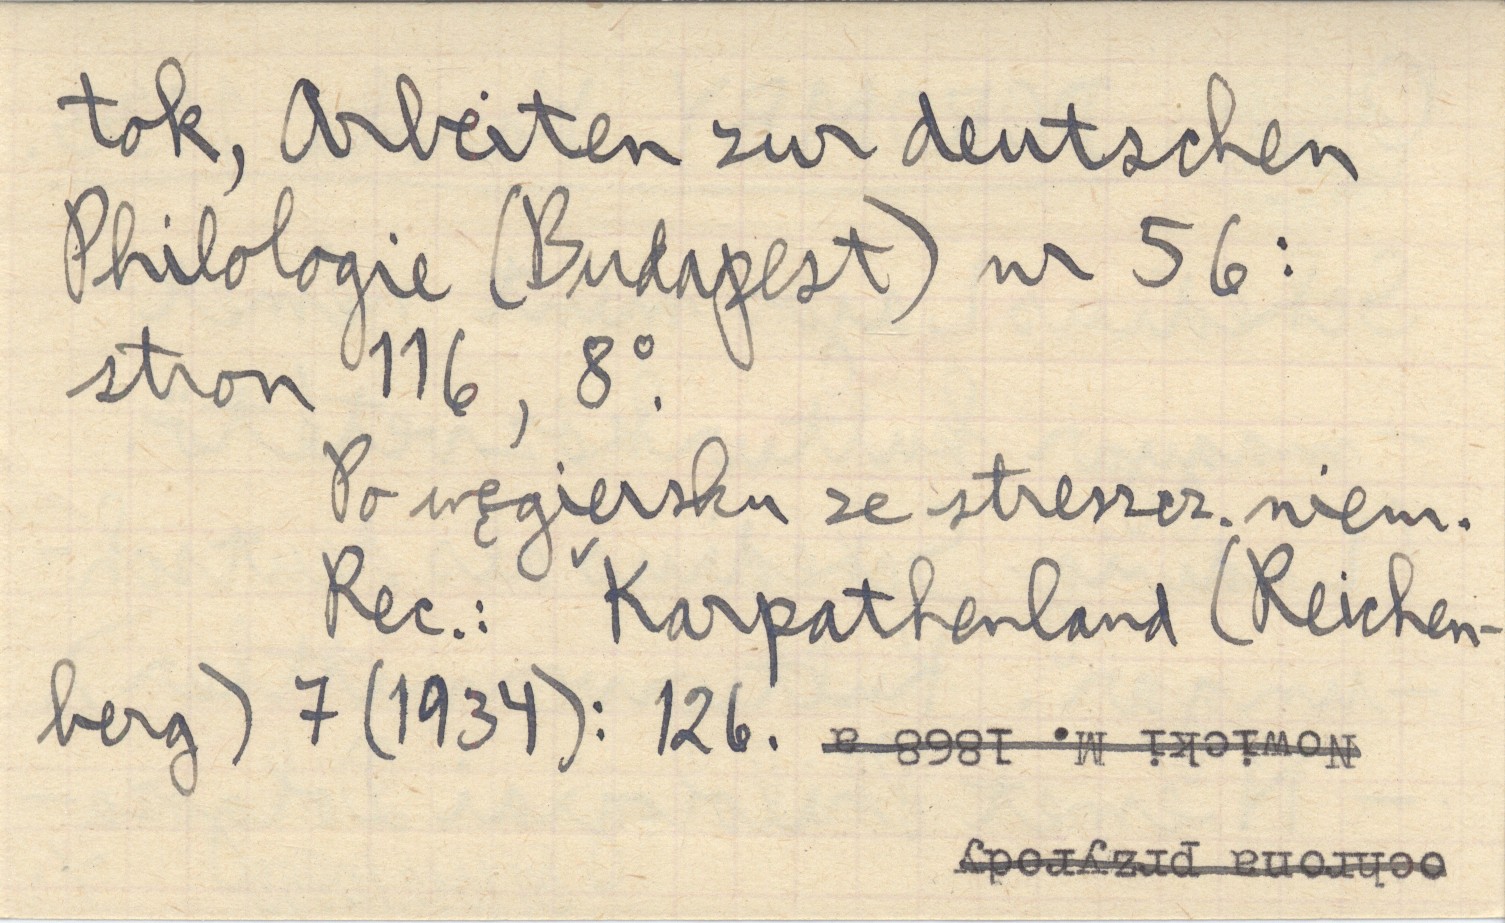 tok, Arbeiten zur deutschen
Philologie (Budapest) nr 56:
stron 116, 8°.
Po węgiersku ze streszcz. niem.
Rec.: ✓Karpathenland (Reichen-
berg) 7 (1934): 126.
Nowicki M. 1868 a
ochrona przyrody